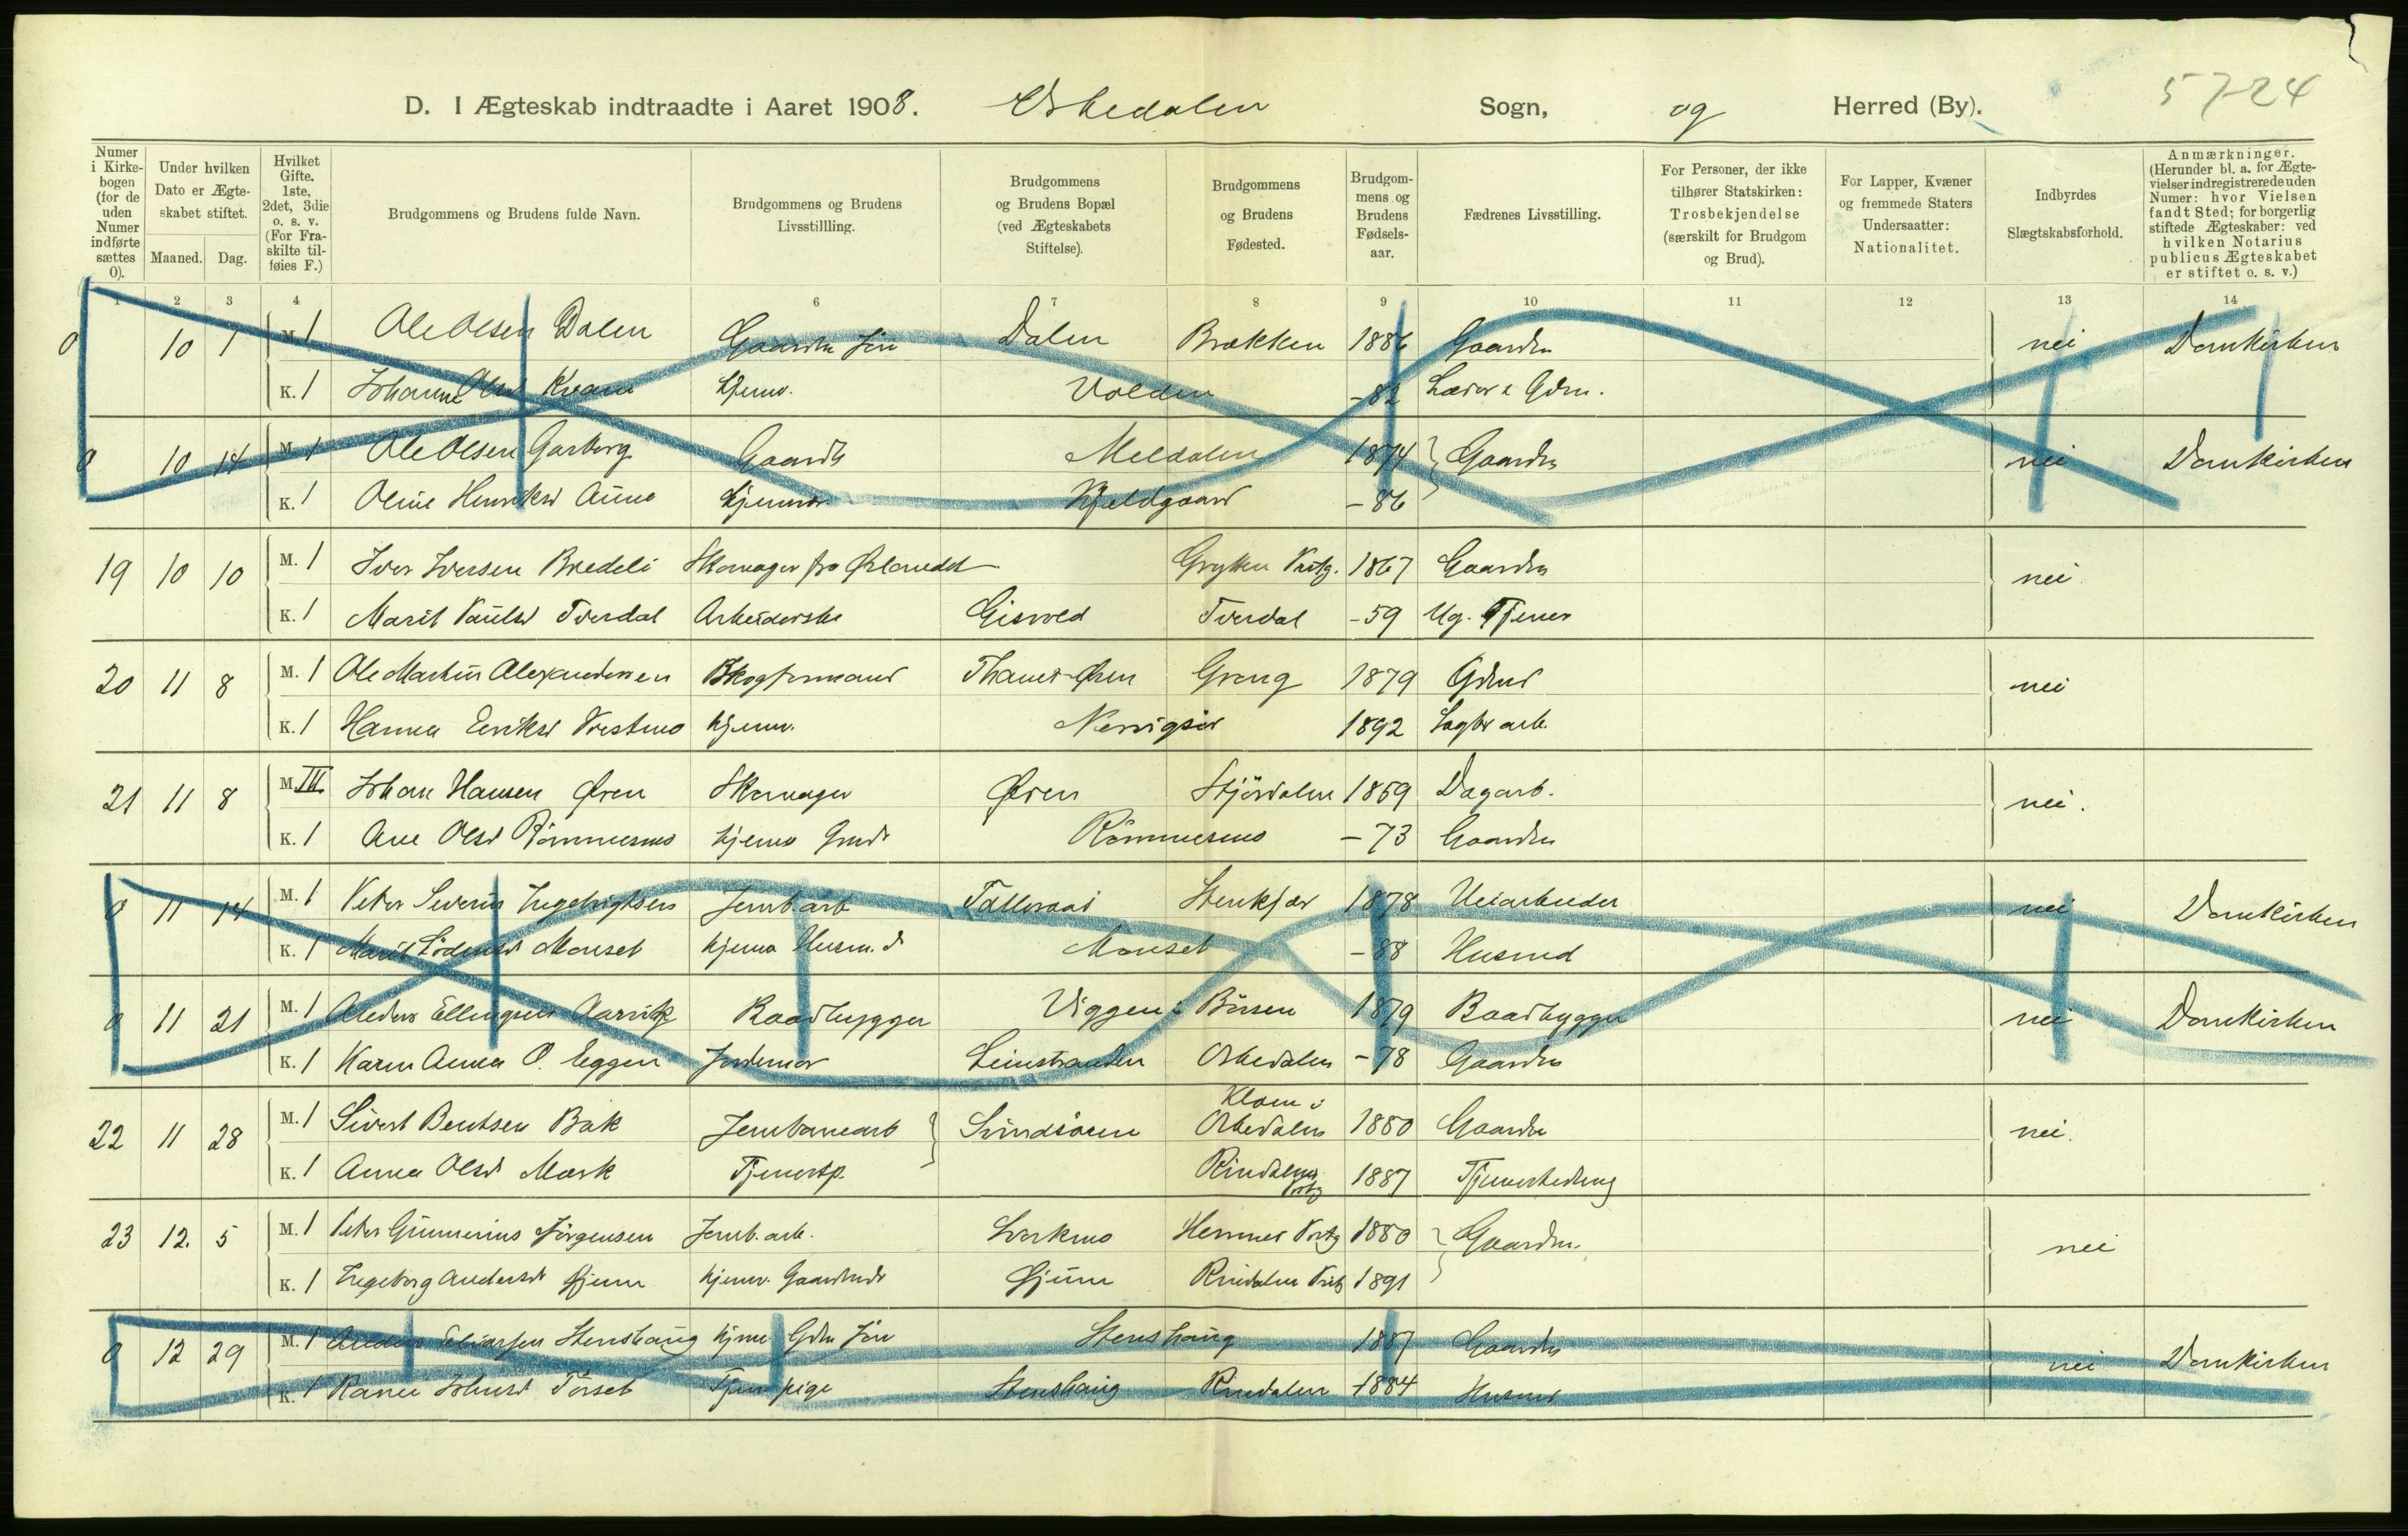 D. I Ægteskab indtraadte i Aaret 1908. Orkedalen Sogn, og Herred (By). 57-24
Numer i Kirkebogen (for de uden Numer indførte sættes 0).
Under hvilken Dato er Ægteskabet stiftet. Maaned. Dag.
Hvilket Gifte. 1ste, 2det, 3die o. s. v. (For Fraskilte tilføies F.)
Brudgommens og Brudens fulde Navn.
Brudgommens og Brudens Livsstillling.
Brudgommens og Brudens Bopæl (ved Ægteskabets Stiftelse).
Brudgommens og Brudens Fødested.
Brudgommens og Brudens Fødselsaar.
Fædrenes Livsstilling.
For Personer, der ikke tilhører Statskirken: Trosbekjendelse (særskilt for Brudgom og Brud).
For Lapper, Kvæner og fremmede Staters Undersaatter: Nationalitet.
Indbyrdes Slægtskabsforhold.
Anmærkninger. (Herunder bl. a. for Ægtevielser indregistrerede uden Numer: hvor Vielsen fandt Sted; for borgerlig stiftede Ægteskaber: ved hvilken Notarius publicus Ægteskabet er stiftet o. s. v.)
1 2 3 4 6 7 8 9 10 11 12 13 14
0 10 1 M. 1 Ole Olsen Dalen Dalen Brækken 1886 Gaardm nei Domkirken
K. 1 Johanne Olsd Kvam hjemv. Volden -82 Lærer & Gdm.
0 10 14 M. 1 Ole Olsen Garberg Gaardb Meldalen 1874 Gaardm nei Domkirken
K. 1 Oline Henriksd Aüne hjemmev. Kjeldgaard -86
19 10 10 M. 1 Iver Iversen Bredeli Skomager fra Ørlandet Grytten 1867 Gaardm nei
K. 1 Marit Paülsd Tverdal Arbeiderske Gisvold Tverdal -59 Ug. Tjener
20 11 8 M. 1 Ole Martin Alexandersen Thams-Øren Grong 1879 Gdmd nei
K. 1 Hanna Eriksd Vestmo hjemv. 1892 Sagbr arb.
21 11 8 M. III. Johan Hansen Øren Skomager Øren Stjørdalen 1859 Dagarb. nei.
K. 1 Ane Olsd Rømmesmo Rømmesmo -73 Gaardm
0 11 14 M. 1 Peter Severin Ingebrigtsen Jernb. arb Stenkjær 1878 Veiarbeider nei Domkirken
K. 1 Marit Monset hjemv Husm. d Monset -88 Husmd
0 11 21 M. 1 Anders Ellingsen Baadbygger Viggen i Børsen 1879 Baadbygger nei Domkirken
K. 1 Karen Anna O. Eggen Jordemor Leinstranden Orkedalen -78 Gaardm
22 11 28 M. 1 Sivert Bentsen Bak Jernbanearb Klom i Orkedalen 1880 Gaardm nei.
K. 1 Anna Olsd Mærk Tjenestp. Rindalen 1887
23 12. 5 M. 1 Peter Günnerius Jørgensen Jernb. arb. 1880 Gaardm. nei
K. 1 Ingeborg Andersd Gjüne hjemv. Gjüne Rindalen 1891
0 12 29 M. 1 Anders Stenshaüg Stenshaüg 1887 Gaardm nei Domkirken
K. 1 Johnsd Tørset Tjen pige Stenshaüg Rindalen 1884 Husmd